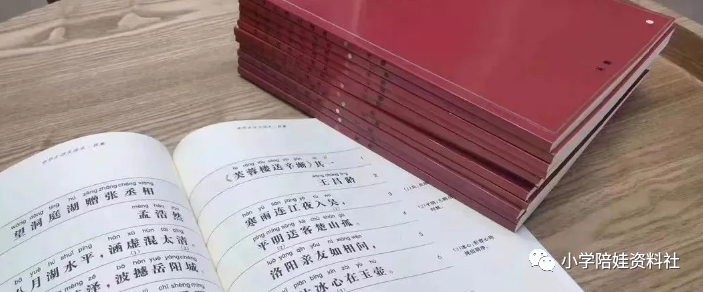 wàng dòng tíng hú zèng zhāng chéng xiàng
望洞庭湖赠张丞相
mèng hào rán
孟浩然
bā yuè hú shuǐ píng
八月湖水平，涵虚混太清。
泽，波撼岳阳城。
《芙蓉楼送辛渐》其一
wáng chāng líng
王昌龄
hán yǔ lián jiāng yè rù wú
寒雨连江夜入吴，
píng míng sòng kè chǔ shān gū
平明送客楚山孤。
luò yáng qīn yǒu rú xiāng wèn
洛阳亲友如相问，
piàn bīng xīn zài yù hú
冰心在玉壶。
小学陪娃资料社